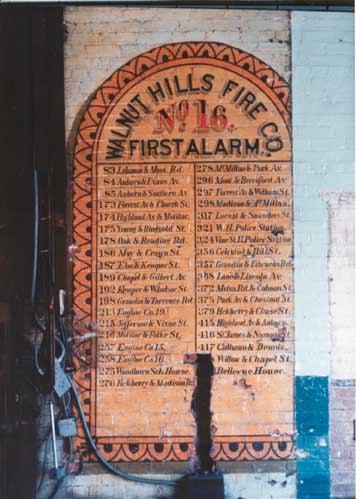 WALNUT HILLS FIRE CO.
No. 16.
FIRST ALARM.
83 Lebanon & Mont. Rd.
84 Auburn & Evans Av.
85 Auburn & Southern Av.
173 Forrest Av & Church St.
174 Highland Av & Molitor.
175 Young & Ringgold St.
178 Oak & Reading Rd.
186 May & Crogen St.
187 Elm & Kemper St.
189 Chapel & Gilbert Av.
192 Kemper & Windsor St.
198 Grandin & Torrence Rd.
213 Engine Co. 19.
215 Jefferson & Nixon St.
216 Molitor & St.
257 Engine Co 15.
258 Engine Co 16.
275 Woodburn Sch. House.
276 Hckberry & Madison Rd.
278 McMillan & Park Av.
296 Mont. & Beresford Av.
297 Forrest Av & Witham St.
298 Madison & McMillan.
317 Locust & Saunders St.
321 W. H. Police Station
324 Vine St. H. Police Station
356 Celestial & Hill St.
357 Grandin & Edwards Rd.
358 Lane & Lincoln Av.
372 Melva Rd. & Cohoon St.
375 Park Av & Chesnut St.
379 Hckberry & Clouse St.
415 Highland Av & Auburn
416 St James & St.
417 Calhoun & Dennis.
Willow & Chapel St.
Bellevue House.